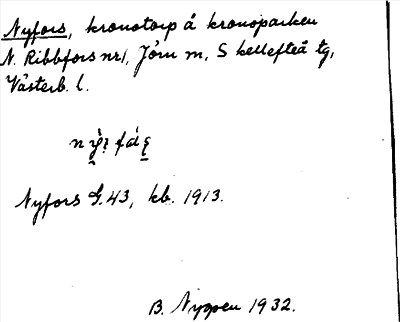 Nyfors, kronotorp å kronoparken
N. Ribbfors nr 1, Jörn sn, Skellefteå tg,
Västerb. l.
Nyfors G. 43, kb. 1913.
B. Nygren 1932.